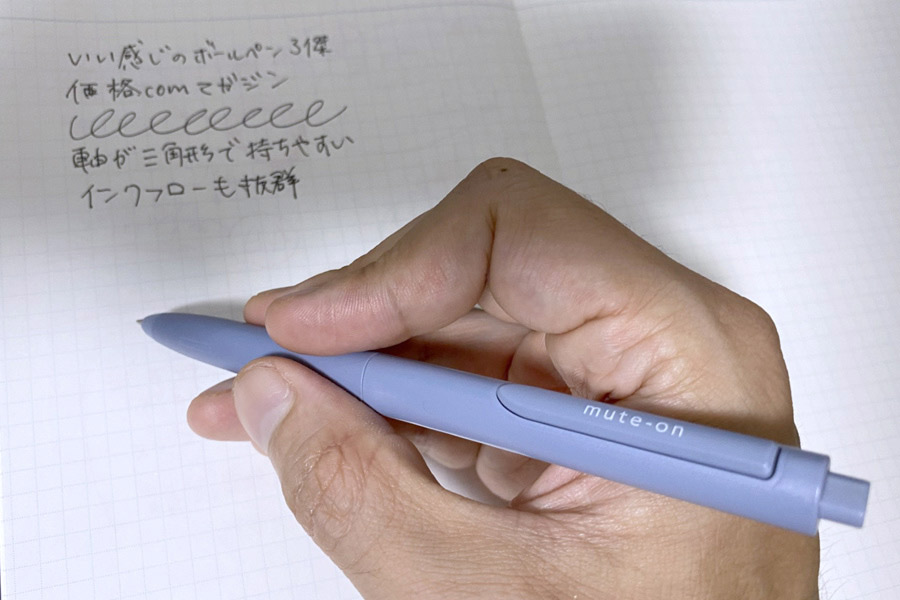 いい感じのボールペン3傑
価格comマガジン
軸が三角形で持ちやすい
インクフローも抜群
mute-on